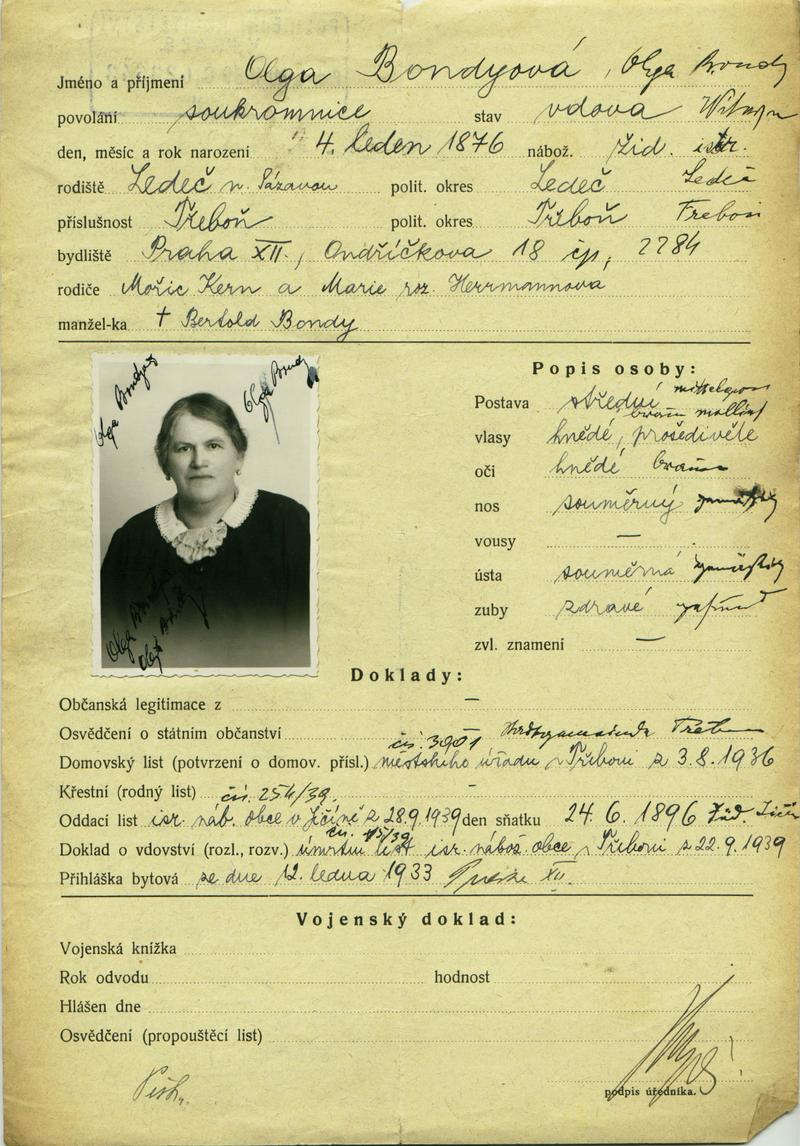 Jméno a příjmení Olga Bondyová, Olga Bondy
povolání soukromnice stav vdova Witwe
den, měsíc a rok narození 4. leden 1876 nábož. žid. isr.
rodiště Ledeč n. Sázavou polit. okres Ledeč Ledeč
příslušnost Třeboň polit. okres Třeboň Třeboň
bydliště Praha XII., Ondříčkova 18 čp. 2284
rodiče Mořic Kern a Marie roz. Herrmannova
manžel-ka † Bertold Bondy
Olga Bondyová Olga Bondy
Olga Bondyová
Olga Bondy
Popis osoby:
Postava střední mittelgross
vlasy hnědé, prošedivělé braun melliert
oči hnědé braun
nos souměrný
vousy —
ústa souměrná
zuby zdravé
zvl. znamení —
Doklady:
Občanská legitimace z —
Osvědčení o státním občanství —
Domovský list (potvrzení o domov. přísl.) čís. 3901 městského úřadu v Třeboni z 3.8.1936
Křestní (rodný list) čís. 254/39. -
Oddací list isr. náb. obce v Jičíně z 28.9.1939 den sňatku 24.6.1896 žid. Jičín
Doklad o vdovství (rozl., rozv.) úmrtní list isr. nábož. obce v Třeboni z 22.9.1939
Přihláška bytová ze dne 12. ledna 1933 Praha XII.
Vojenský doklad:
Vojenská knížka
Rok odvodu hodnost
Hlášen dne
Osvědčení (propouštěcí list)
podpis úředníka.